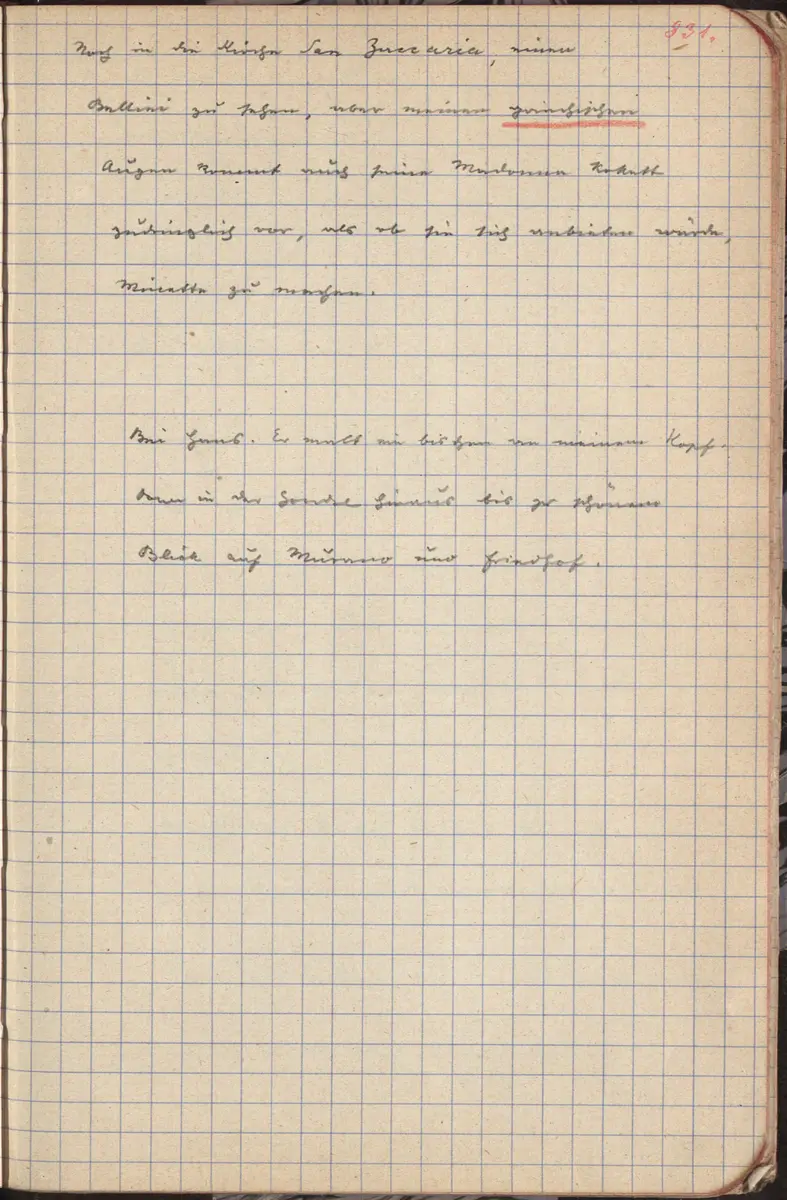 831.
Noch in die Kirche San Zaccaria, einen
Bellini zu sehen, aber meinen griechischen
Augen kommt auch seine Madonna kokett
zudringlich vor, als ob sie sich anbieten würde,
zu machen.
Bei Hans. Er malt ein bischen an meinem Kopf.
Dann in der Gondel hinaus bis zr schönem
Blick auf Murano und Friedhof.